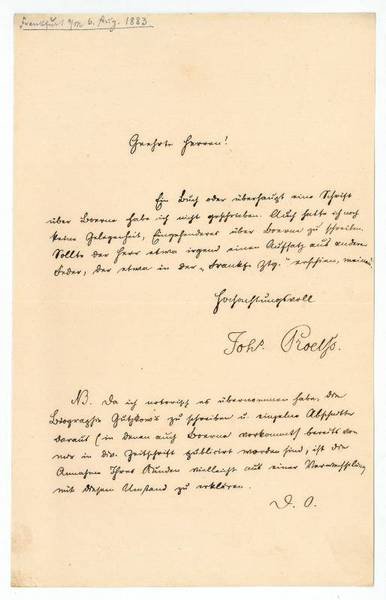 Frankfurt a/M 6. Aug. 1883
Geehrte Herren!
Ein Buch oder überhaupt eine Schrift
über Boerne habe ich nicht geschrieben. Auch hatte ich noch
keine Gelegenheit, Eingehenderes über Boerne zu schreiben.
Sollte der Herr etwa irgend einen Aufsatz aus anderer
Feder, der etwa in der „Frankf. Ztg." erschien, meinen?
Hochachtungsvoll
Johs. Proelss.
NB. Da ich notorisch es übernommen habe, die
Biographie Gutzkow's zu schreiben u. einzelne Abschnitte
daraus (in denen auch Boerne vorkommt) bereits von
mir in div. Zeitschrift publicirt worden sind, ist die
Annahme Ihres Kunden vielleicht aus einer Verwechslung
mit diesem Umstand zu erklären.
D. O.